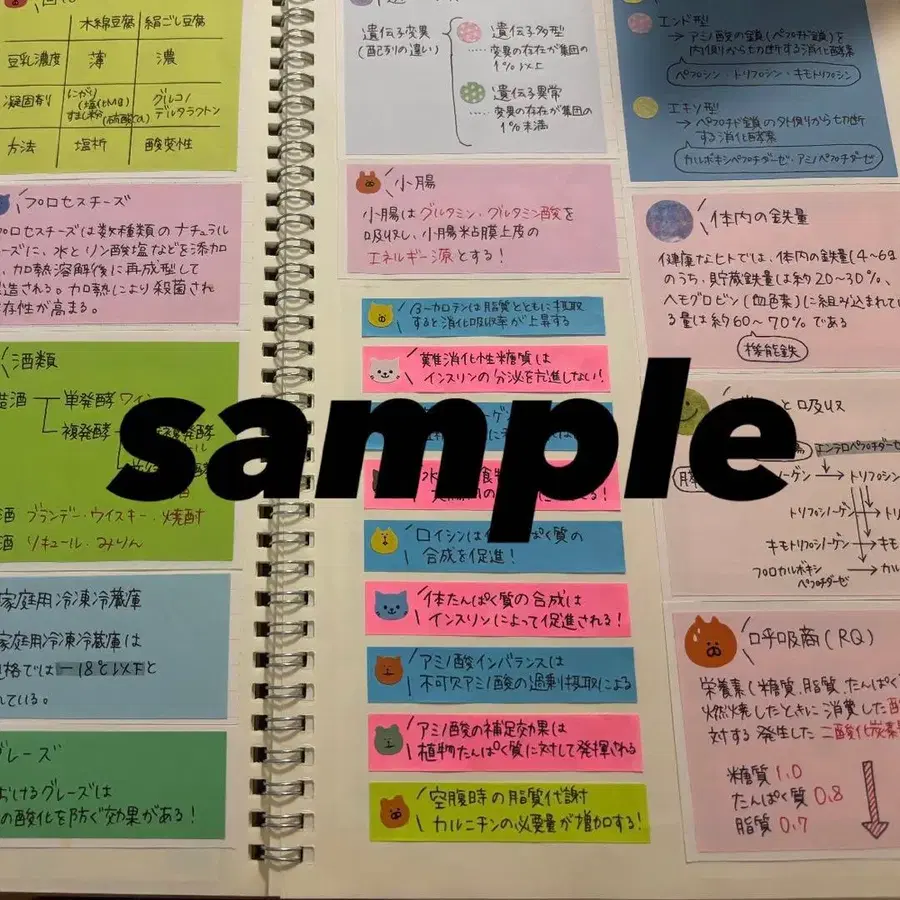 木綿豆腐 絹ごし豆腐
豆乳濃度 薄 濃
凝固剤 にがり(塩化Mg) すまし粉(硫酸Ca) グルコノデルタラクトン
方法 塩析 酸変性
プロセスチーズ
プロセスチーズは数種類のナチュラル
ーズに、水とリン酸塩などを添加
加熱溶解後に再成型して
造される。加熱により殺菌され
存性が高まる。
酒類
造酒 単発酵 ワイン
複発酵
酒 ブランデー・ウイスキー・焼酎
酒 リキュール・みりん
家庭用冷凍冷蔵庫
家庭用冷凍冷蔵庫は
規格では-18℃以下と
れている。
グレーズ
おけるグレーズは
の酸化を防ぐ効果がある!
遺伝子変異
(配列の違い)
遺伝子多型
……変異の存在が集団の
1%以上
遺伝子異常
……変異の存在が集団の
1%未満
小腸
小腸はグルタミン・グルタミン酸を
吸収し、小腸粘膜上皮の
エネルギー源とする!
β-カロテンは脂質とともに摂取
すると消化吸収率が上昇する
難消化性糖質は
インスリンの分泌を亢進しない!
sample
ロイシンは
合成を促進!
体たんぱく質の合成は
インスリンによって促進される!
アミノ酸インバランスは
不可欠アミノ酸の過剰摂取による
アミノ酸の補足効果は
植物たんぱく質に対して発揮される
空腹時の脂質代謝
カルニチンの必要量が増加する!
エンド型
→アミノ酸の鎖(ペプチド鎖)を
内側から切断する消化酵素
ペプシン・トリプシン・キモトリプシン
エキソ型
→ペプチド鎖の外側から切断
する消化酵素
カルボキシペプチダーゼ・アミノペプチダーゼ
体内の鉄量
健康なヒトでは、体内の鉄量(4~6g
のうち、貯蔵鉄量は約20~30%、
ヘモグロビン(血色素)に組み込まれてい
る量は約60~70%である
機能鉄
と吸収
エンテロペプチダーゼ
ノーゲン → トリプシン
トリプシノーゲン → トリ
キモトリプシノーゲン → キモ
プロカルボキシ
ペプチダーゼ → カル
呼吸商(RQ)
栄養素(糖質、脂質、たんぱく
燃焼したときに消費した酸
対する発生した二酸化炭素
糖質 1.0
たんぱく質 0.8
脂質 0.7